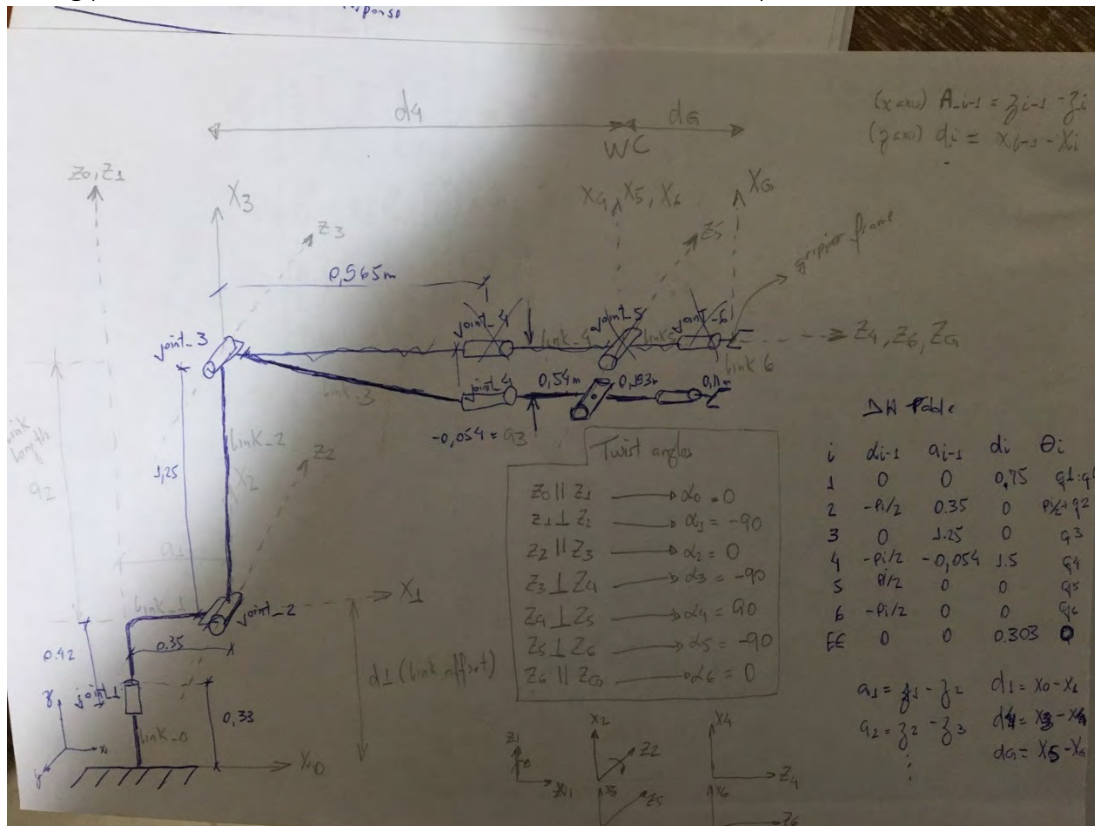 d4
dG
WC
(x axis) A_i-1 = zi-1 - zi
(z axis) di = xi-1 - xi
Z0, Z1
X3
Z3
X4, X5, X6
Z5
XG
gripper frame
0,565m
joint_4
joint_5
joint_6
link_4
link5
Z4, Z6, ZG
joint_3
link_3
joint_4
0,54m
0,193m
0,11m
link 6
-0,054 = a3
link length
a2
1,25
link_2
X2
Z2
a1
link_1
joint_2
X1
0.42
0.35
joint_1
0,33
d1 (link offset)
link_0
X0
z
x
y
Twist angles
Z0 || Z1 → α0 = 0
Z1 ⊥ Z2 → α1 = -90
Z2 || Z3 → α2 = 0
Z3 ⊥ Z4 → α3 = -90
Z4 ⊥ Z5 → α4 = 90
Z5 ⊥ Z6 → α5 = -90
Z6 || ZG → α6 = 0
DH Table
i αi-1 ai-1 di θi
1 0 0 0,75 q1:
2 -Pi/2 0.35 0 Pi/2+q2
3 0 1.25 0 q3
4 -Pi/2 -0,054 1.5 q4
5 Pi/2 0 0 q5
6 -Pi/2 0 0 q6
EE 0 0 0.303 0
a1 = z1 - z2 d1 = x0 - x1
a2 = z2 - z3 d4 = x3 - x4
dG = X5 - XG
Z1
X2
Z2
X4
Z4
Z5
X6
Z6